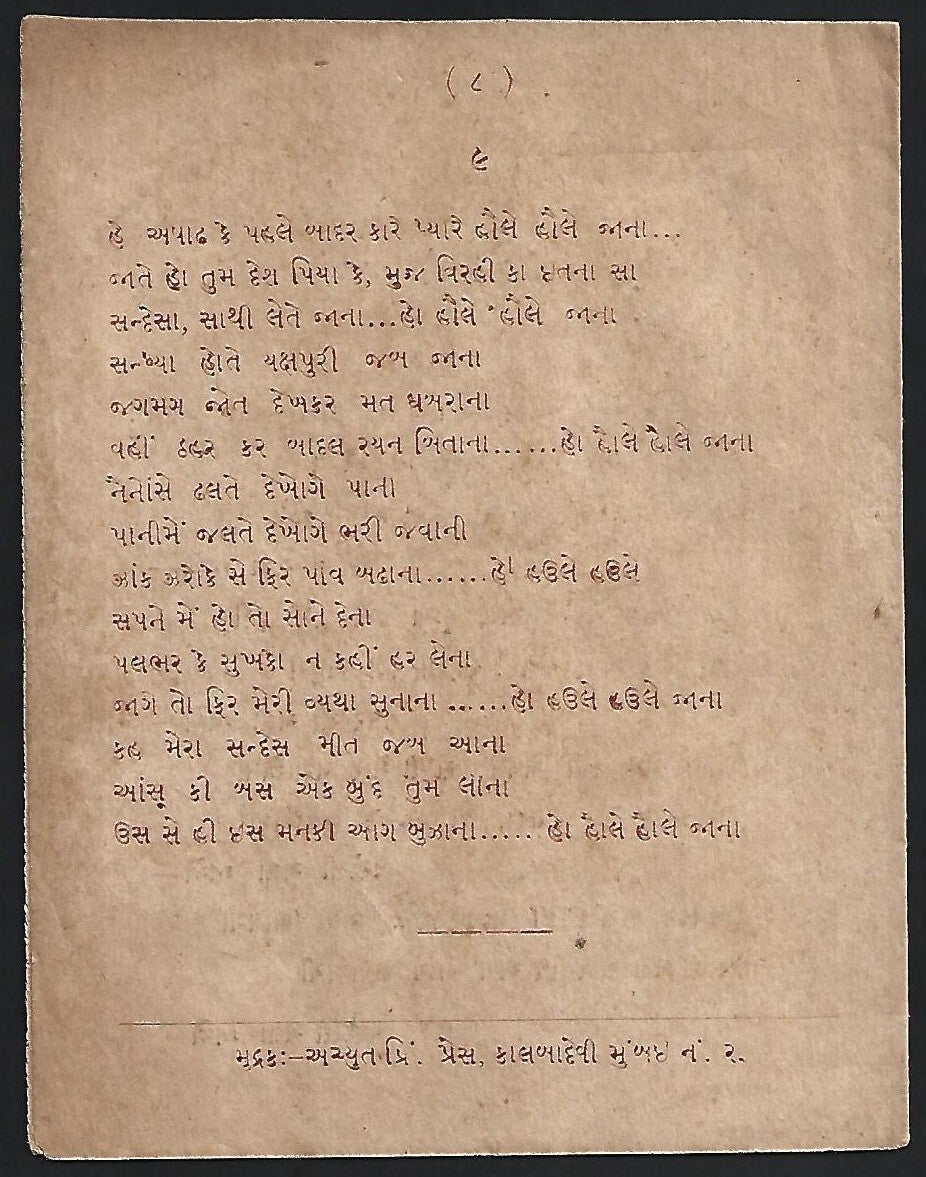 ( ૮ )
૯
હે અષાઢ કે પહલે બાદર કારે પ્યારે હૌલે હૌલે જાના...
જાતે હો તુમ દેશ પિયા કે, મુજ વિરહી કા ઇતના સા
સન્દેસા, સાથી લેતે જાના...હો હૌલે હૌલે જાના
સન્ધ્યા હોતે યક્ષપુરી જબ જાના
જગમગ જોત દેખકર મત ઘબરાના
વહીં ઠહર કર બાદલ રયન બિતાના......હો હૌલે હૌલે જાના
નૈનોંસે ઢલતે દેખોગે પાના
પાનીમેં જલતે દેખોગે ભરી જવાની
ઝાંક ઝરોકે સે ફિર પાંવ બઢાના......હો હઉલે હઉલે
સપને મેં હો તો સોને દેના
પલભર કે સુખકો ન કહીં હર લેના
જાગે તો ફિર મેરી વ્યથા સુનાના ......હો હઉલે હઉલે જાના
કહ મેરા સન્દેસ મીત જબ આના
આંસૂ કી બસ એક બુંદ તુમ લાના
ઉસ સે હી ઇસ મનકી આગ બુઝાના..... હો હૌલે હૌલે જાના
મુદ્રક:–અચ્યુત પ્રિં. પ્રેસ, કાલબાદેવી મુંબઇ નં. ૨.